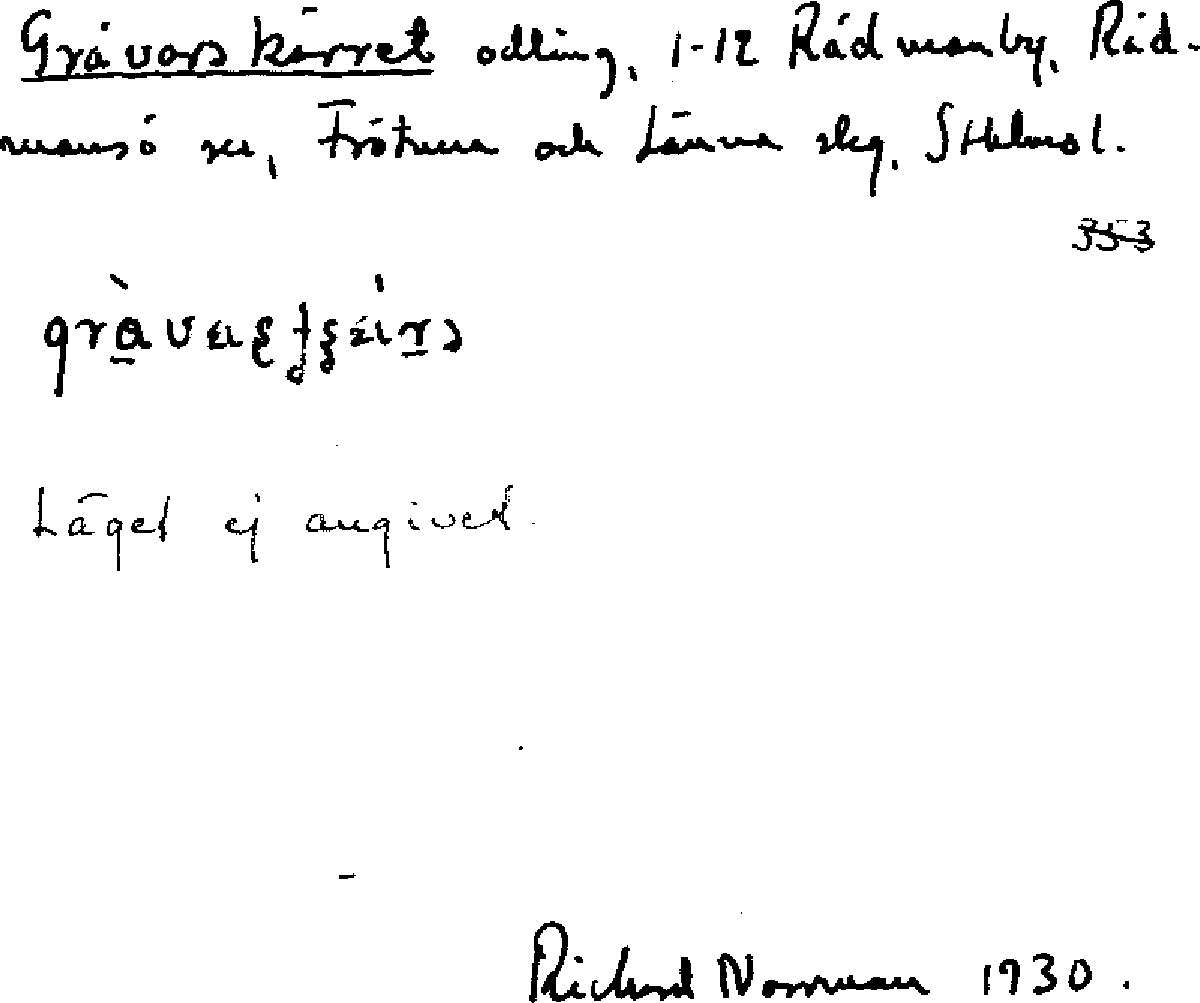 Gråvarskärret odling, 1-12 Rådmanby, Råd-
mansö sn, Frötuna och Länna skg. Sthlms l.
353
Läget ej angivet.
Richard Norrman 1930.